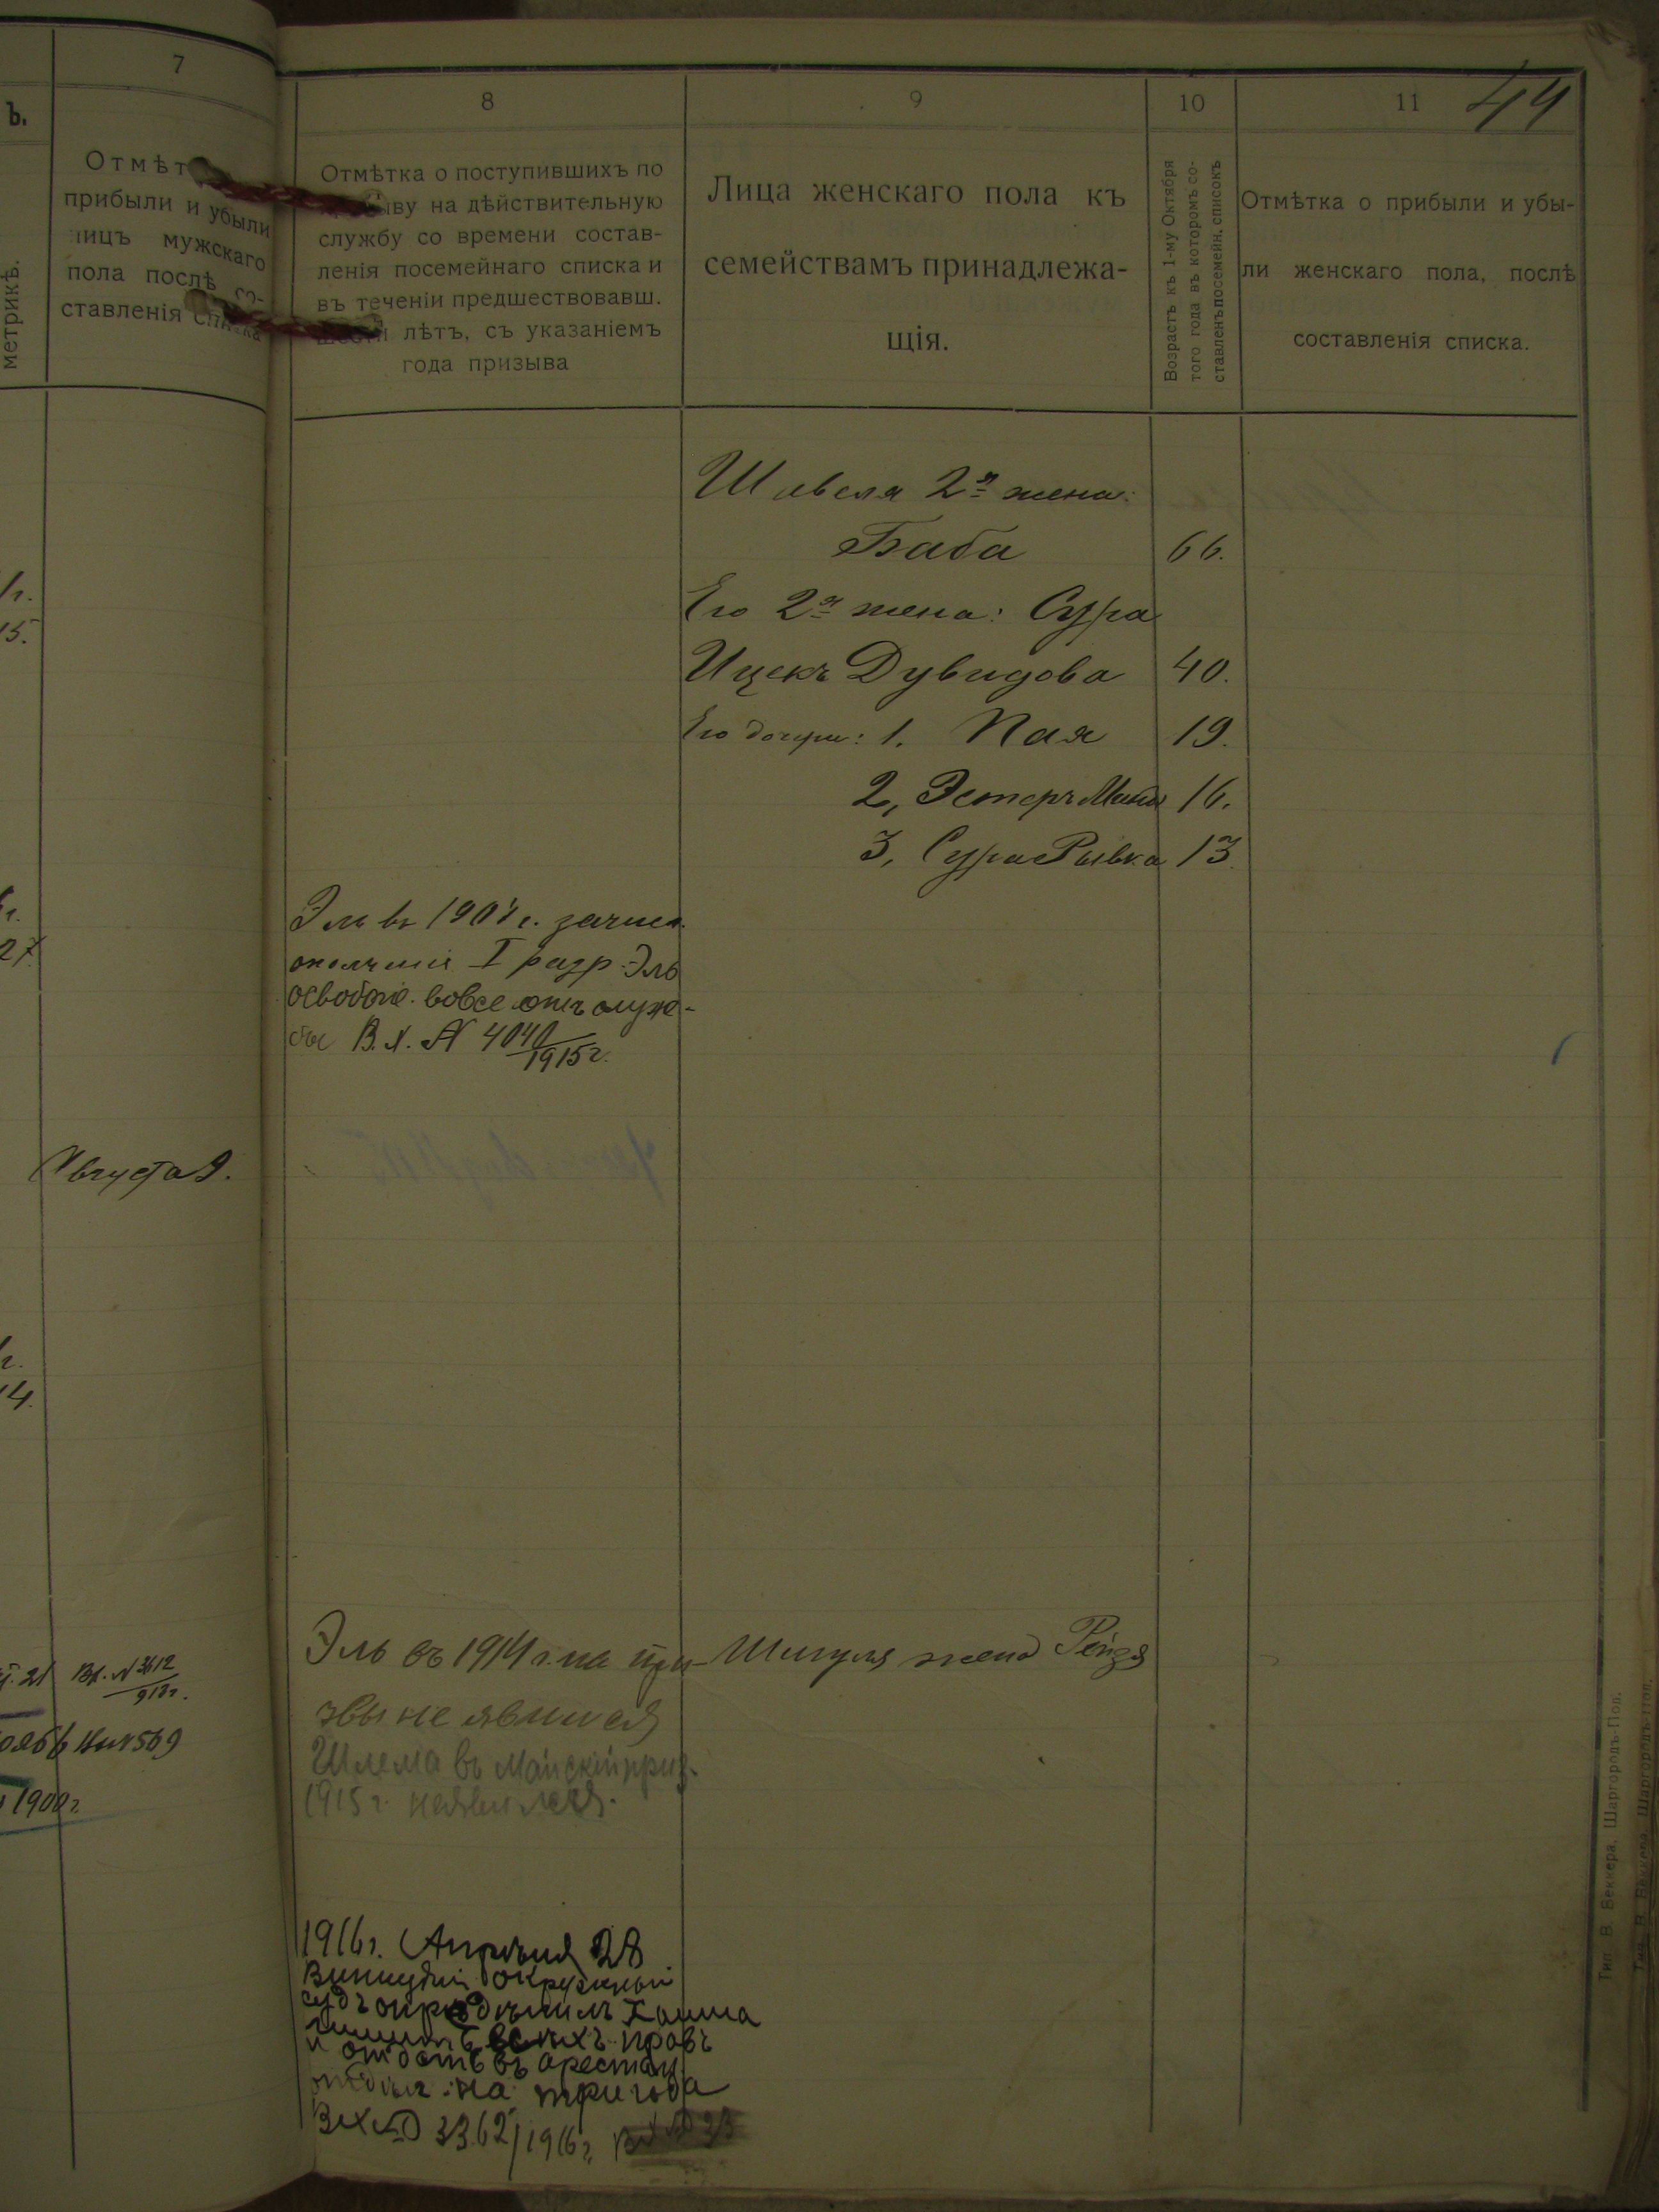 7
ъ.
Отмѣт
прибыли и убыли
лицъ мужскаго
пола послѣ со-
ставленія списка
метрикѣ.
г.
15.
27.
Августа 9.
14.
21 Вх. № 3612
913 г.
№ 569
1900 г.
44
8
Отмѣтка о поступившихъ по
призыву на дѣйствительную
службу со времени состав-
ленія посемейнаго списка и
въ теченіи предшествовавш.
шести лѣтъ, съ указаніемъ
года призыва
9
Лица женскаго пола къ
семействамъ принадлежа-
щія.
10
Возрастъ къ 1-му Октября
того года въ которомъ со-
ставленъ посемейн. списокъ
11
Отмѣтка о прибыли и убы-
ли женскаго пола, послѣ
составленія списка.
Шавеля 2я жена:
Баба 66.
Его 2я жена: Сура
Ицекъ Дувидова 40.
Его дочери: 1. Пая 19.
2, Эстеръ 16.
3, Сура Рывка 13.
Эль въ г. зачисл.
ополченія I разр. Эль
освобожд. вовсе отъ служ-
бы В.х. № 4040
1915 г.
Эль въ 1914 г. на при-
звы не явился
Шлема въ Майскій приз.
1915 г. неявился.
Шигуля жена Рейзя
1916 г. Апрѣля 28
Винницкій Окружный
судъ опредѣлилъ Хаима
лишить всѣхъ правъ
и отдать въ арестан.
отдѣл. на три года
Вх № 3362/1916 г.
Тип. В. Беккера, Шаргородъ-Под.
Тип. В. Беккера, Шаргородъ-Под.